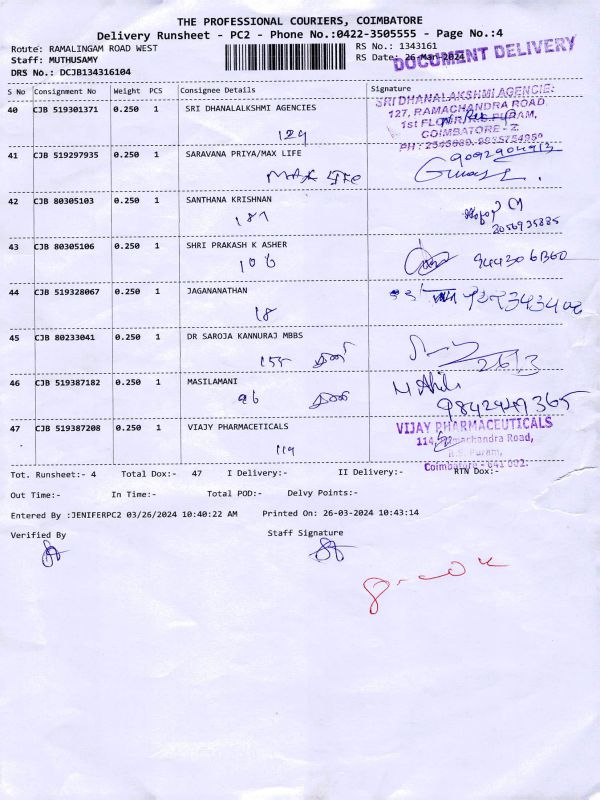 THE PROFESSIONAL COURIERS, COIMBATORE
Delivery Runsheet - PC2 - Phone No.:0422-3505555 - Page No.:4
Route: RAMALINGAM ROAD WEST
RS No.: 1343161
Staff: MUTHUSAMY
RS Date: 26-Mar-2024
DOCUMENT DELIVERY
DRS No.: DCJB134316104
S No Consignment No Weight PCS Consignee Details Signature
40 CJB 519301371 0.250 1 SRI DHANALALKSHMI AGENCIES
129
SRI DHANALAKSHMI AGENCIE
127, RAMACHANDRA ROAD,
1st FLOOR, R.S.PURAM,
COIMBATORE - 2.
41 CJB 519297935 0.250 1 SARAVANA PRIYA/MAX LIFE
MAX life
9092904913
42 CJB 80305103 0.250 1 SANTHANA KRISHNAN
187
43 CJB 80305106 0.250 1 SHRI PRAKASH K ASHER
106
44 CJB 519328067 0.250 1 JAGANANATHAN
18
45 CJB 80233041 0.250 1 DR SAROJA KANNURAJ MBBS
155
26/3
46 CJB 519387182 0.250 1 MASILAMANI
96
47 CJB 519387208 0.250 1 VIAJY PHARMACETICALS
119
VIJAY PHARMACEUTICALS
114, Ramachandra Road,
R.S. Puram,
Coimbatore - 641 002.
Tot. Runsheet:- 4 Total Dox:- 47 I Delivery:- II Delivery:- RTN Dox:-
Out Time:- In Time:- Total POD:- Delvy Points:-
Entered By :JENIFERPC2 03/26/2024 10:40:22 AM Printed On: 26-03-2024 10:43:14
Verified By Staff Signature